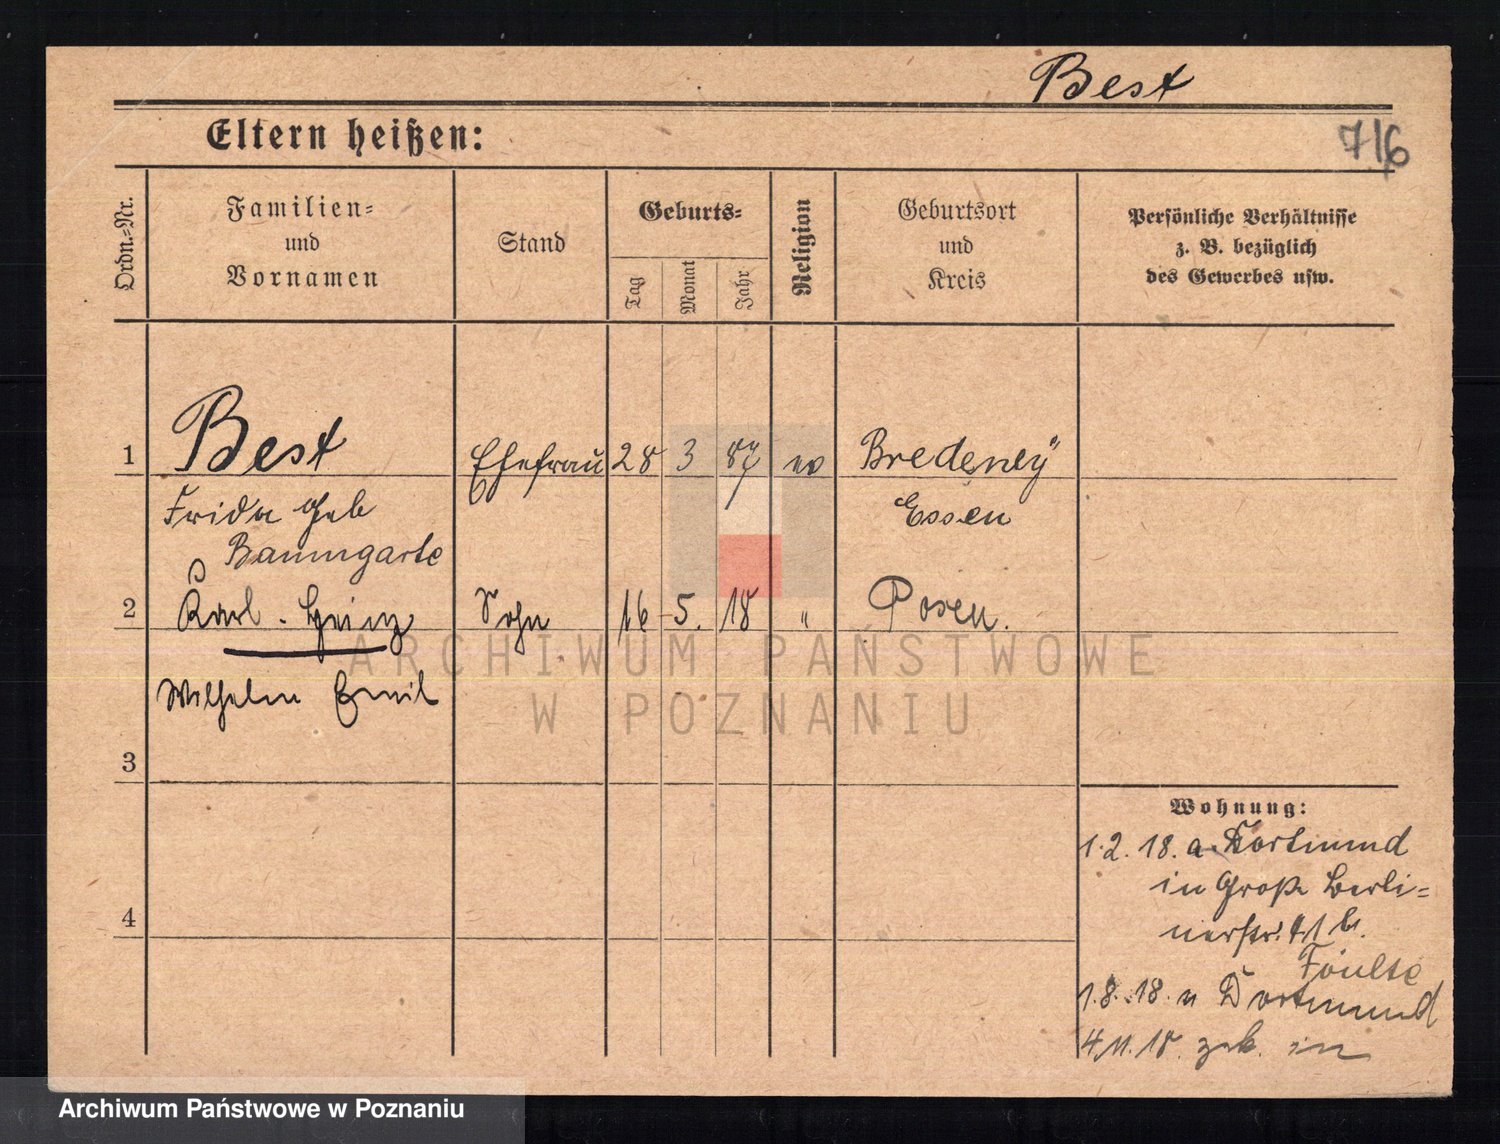 Best
Eltern heißen:
716
Ordn.-Nr.
Familien-
und
Vornamen
Stand
Geburts-
Tag
Monat
Jahr
Religion
Geburtsort
und
Kreis
Persönliche Verhältnisse
z. B. bezüglich
des Gewerbes usw.
1 Best Ehefrau 28 3 87 ev Bredeney
Frida geb Essen
Baumgarte
2 Karl-Heinz Sohn 16 5. 18 " Posen.
Wilhelm Emil
3
Wohnung:
1.2.18. a. Dortmund
in Große Berli=
nerstr. 41 b.
4
1.8.18. n Dortmund
4.11.18. zek. in
ARCHIWUM PAŃSTWOWE
W POZNANIU
Archiwum Państwowe w Poznaniu